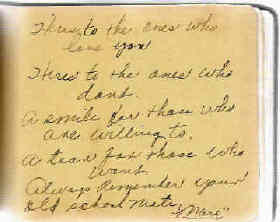 Heres to the ones who
love you
Heres to the ones who
dont.
A smile for those who
are willing to.
A tear for those who
wont
Always remember your
old school mate
"Marie"